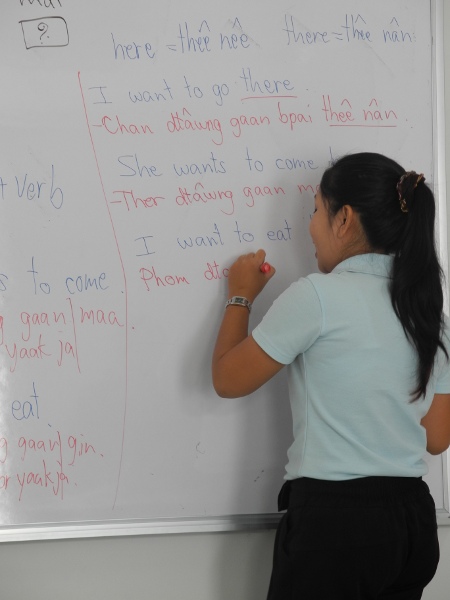 ?
here = thêê nêê there = thêê nân
I want to go there.
-Chan dtâwng gaan bpai thêê nân.
She wants to come
-Ther dtâwng gaan
I want to eat
Phom
verb
to come.
gaan | maa.
yaak ja
eat.
gaan | gin.
yaak ja